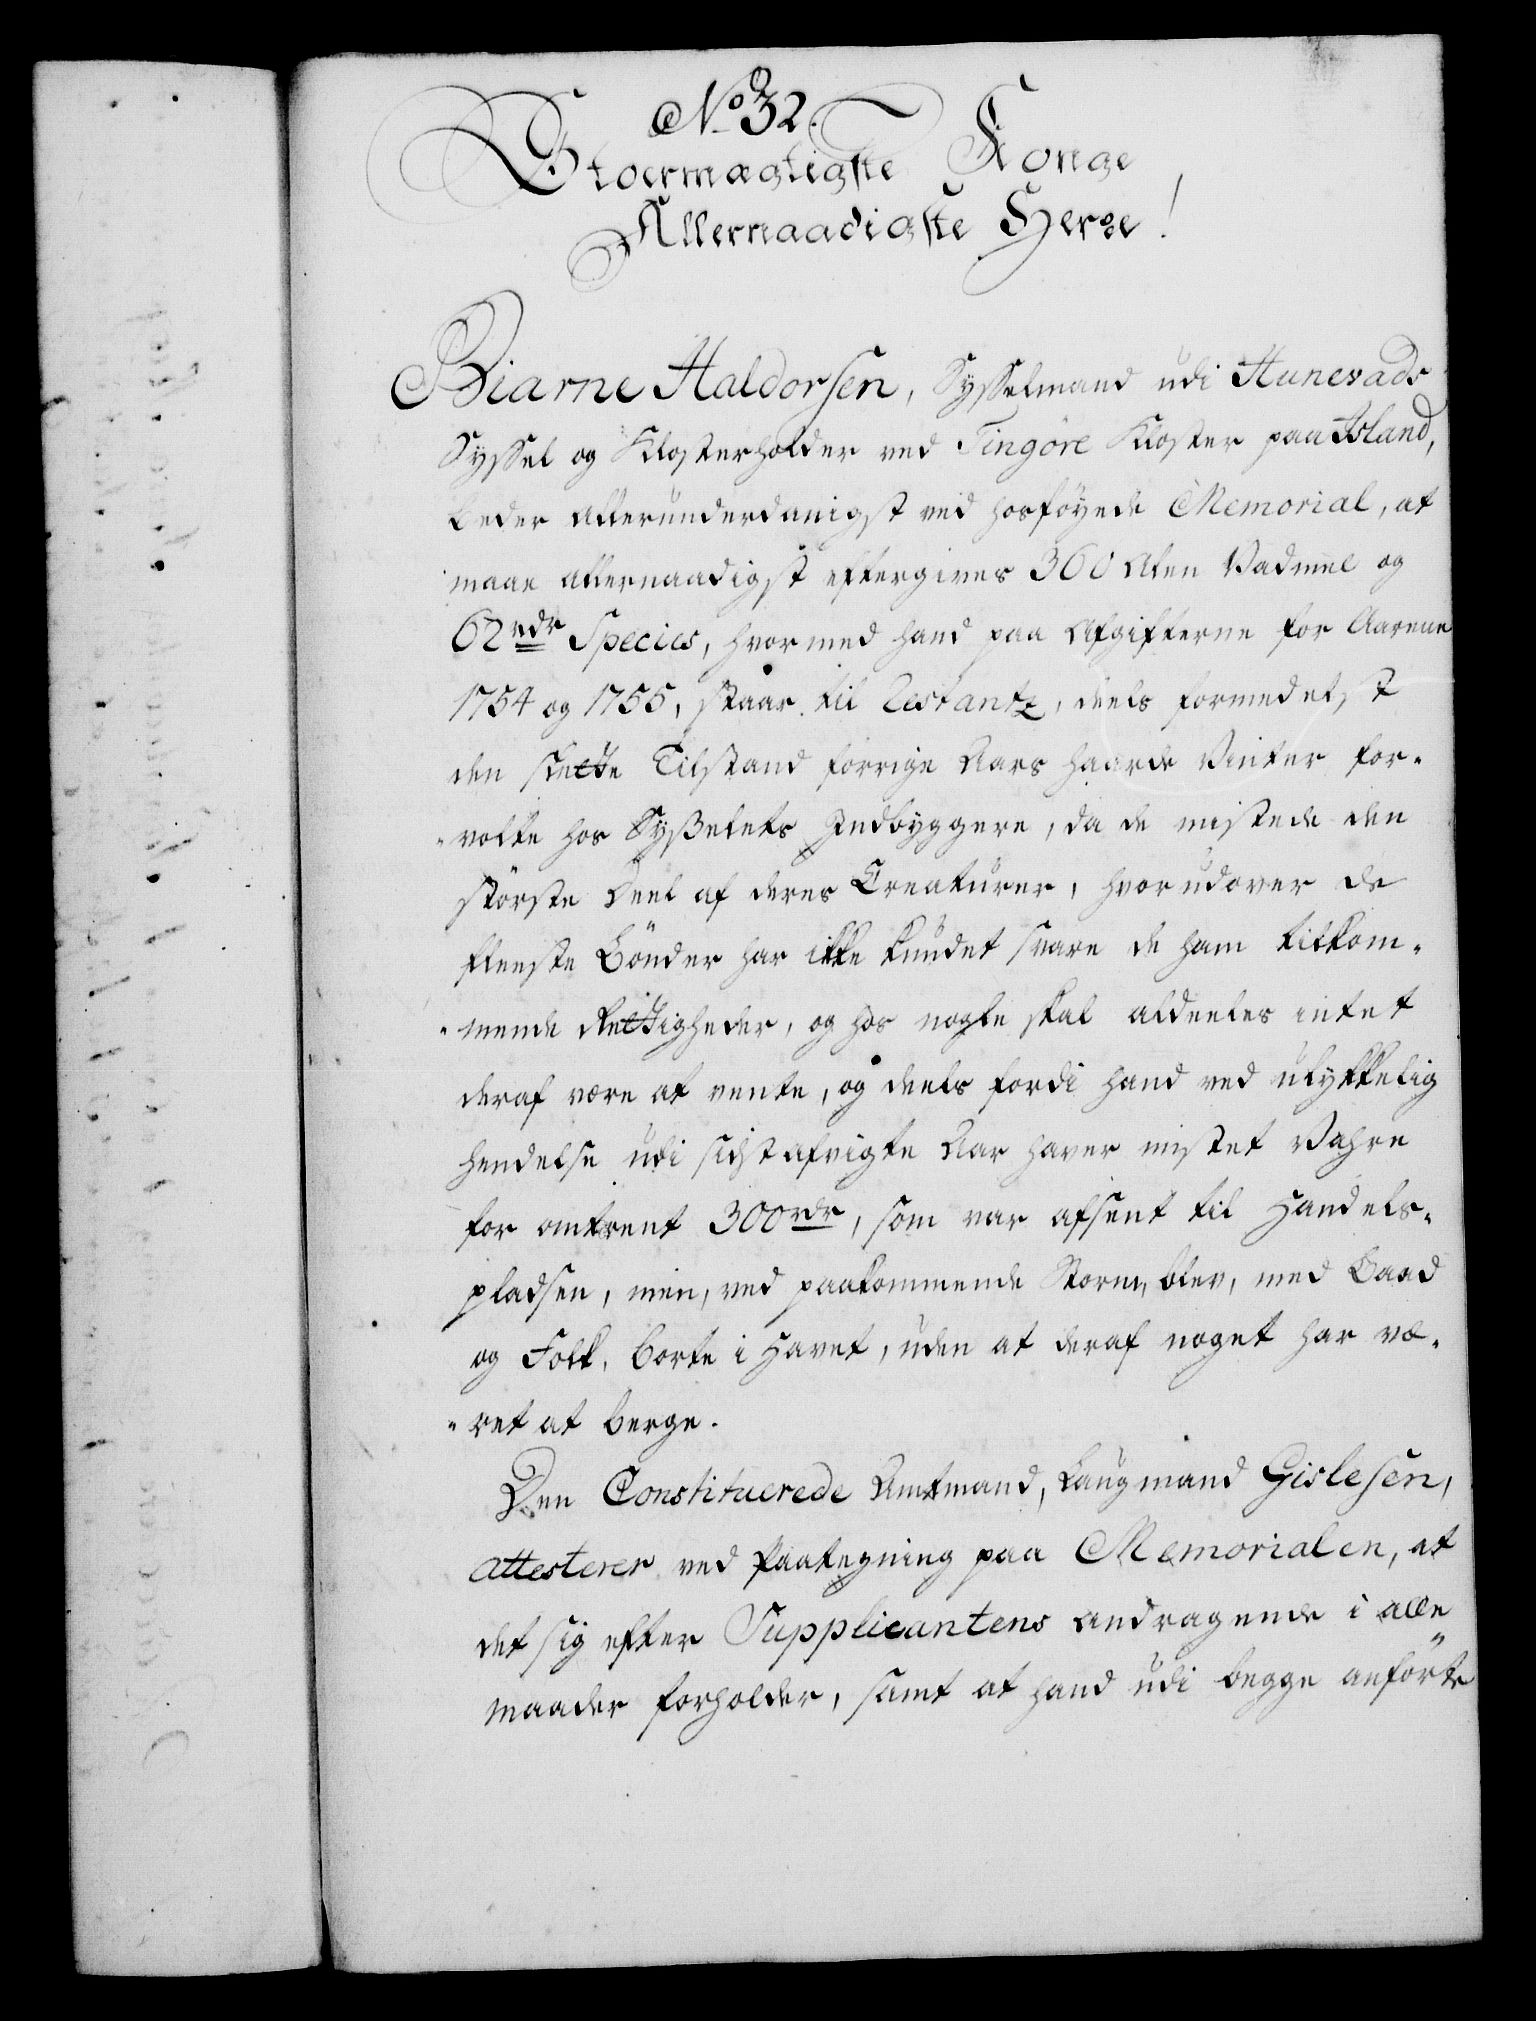 No 32.
Stoermægtigste Konge
Allernaadigste Herre!
Biarne Haldorsen, Sysselmand udi Hunevads
Syssel og Klosterholder ved Tingöre Kloster paa Island,
beder allerunderdanigst ved hosföyede Memorial, at
maae allernaadigst eftergives 360 Alen Vadmel og
62 rdr Species, hvormed hand paa Afgifterne for Aarene
1754 og 1755, staar til Restantz, deels formedelst
den slette Tilstand forrige Aars haarde Vinter for-
-volte hos Sysselets Indbyggere, da de mistede den
störste Deel af deres Creaturer, hvorudover de
fleeste Bönder har ikke kundet svare de ham tilkom-
-mende Rettigheder, og hos nogle skal aldeeles intet
deraf være at vente, og deels fordi hand ved ulykkelig
hendelse udi sidstafvigte Aar haver mistet Vahre
for omtrent 300 rdr, som var afsent til Handels-
pladsen, men, ved paakommende Storm, blev, med Baad
og Folk, borte i Havet, uden at deraf noget har væ-
-ret at berge.
Den Constituerede Amtmand, Laugmand Gislesen,
attesterer ved Paategning paa Memorialen, at
det sig efter Supplicantens andragende i alle
maader forholder, samt at hand udi begge anförte